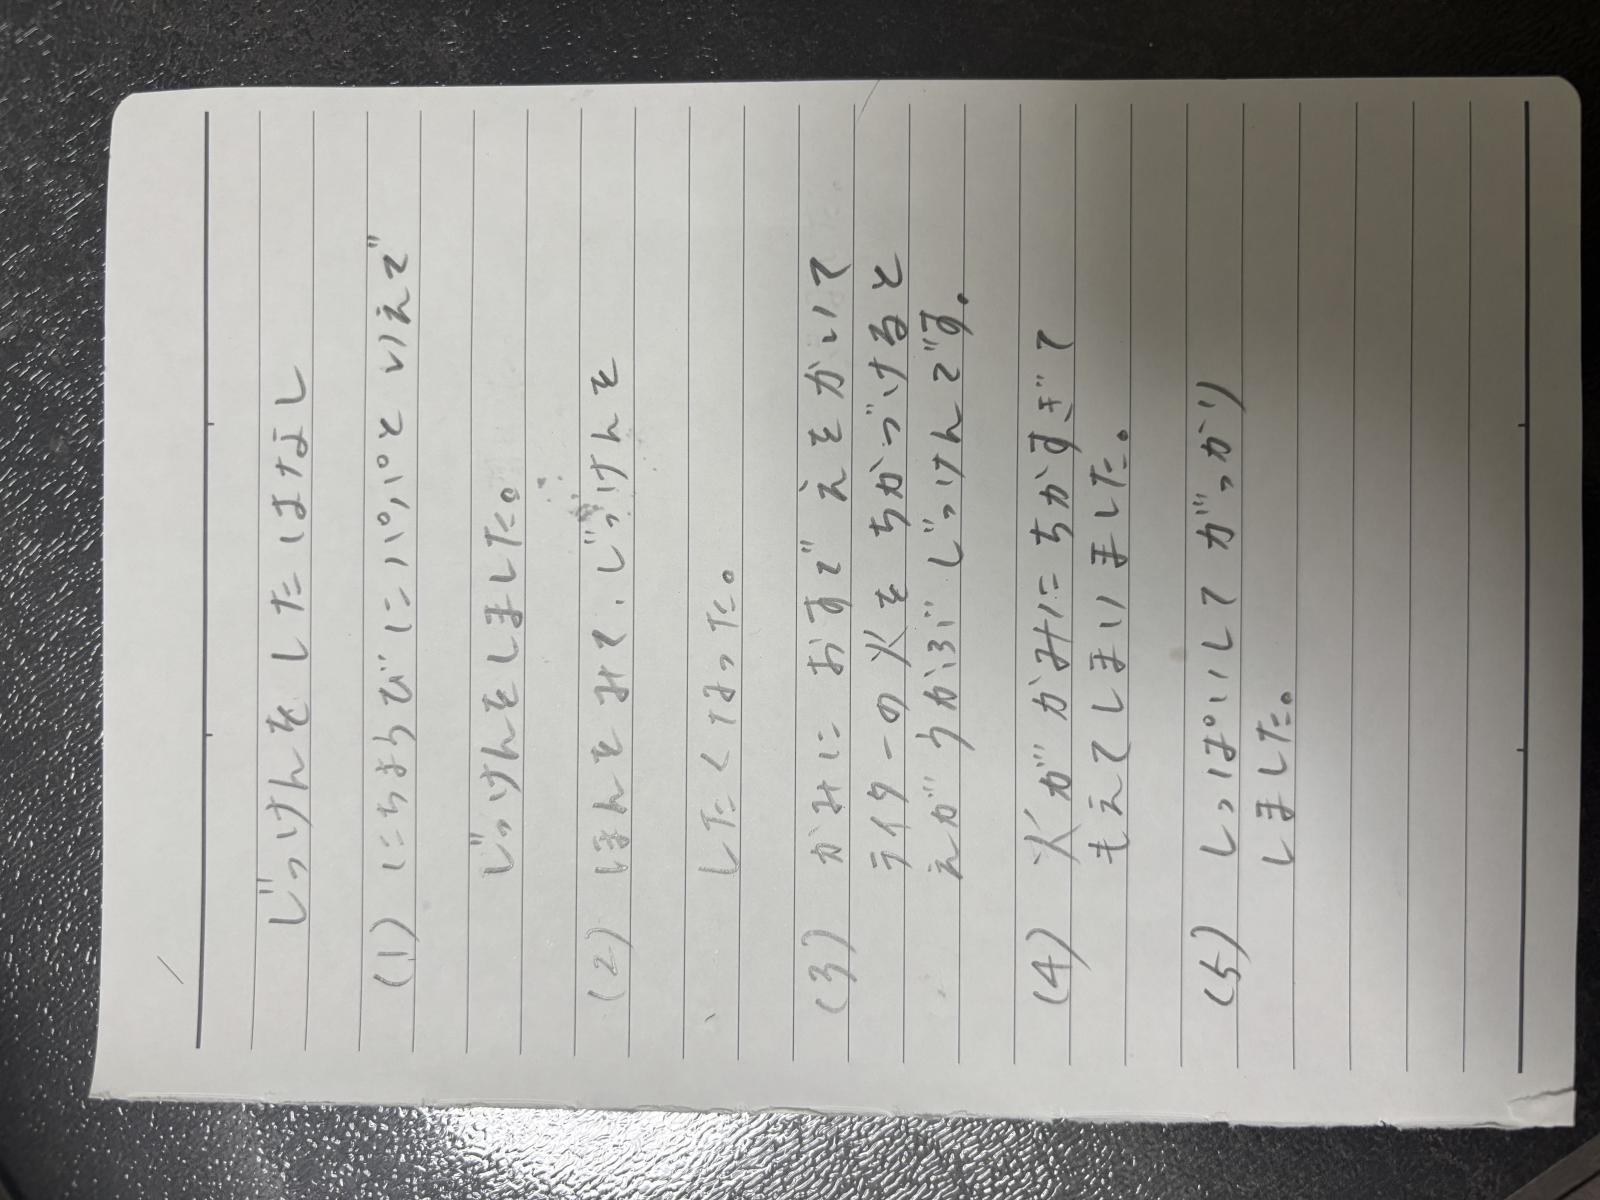 じっけんをしたはなし
(1) にちようびにパパと いえで
じっけんをしました。
(2) ほんをみて、じっけんを
したくなった。
(3) かみに おすで えをかいて
ライターの火を ちかづけると
えが うかぶ じっけんです。
(4) 火が かみに ちかすぎて
もえてしまいました。
(5) しっぱいして がっかり
しました。